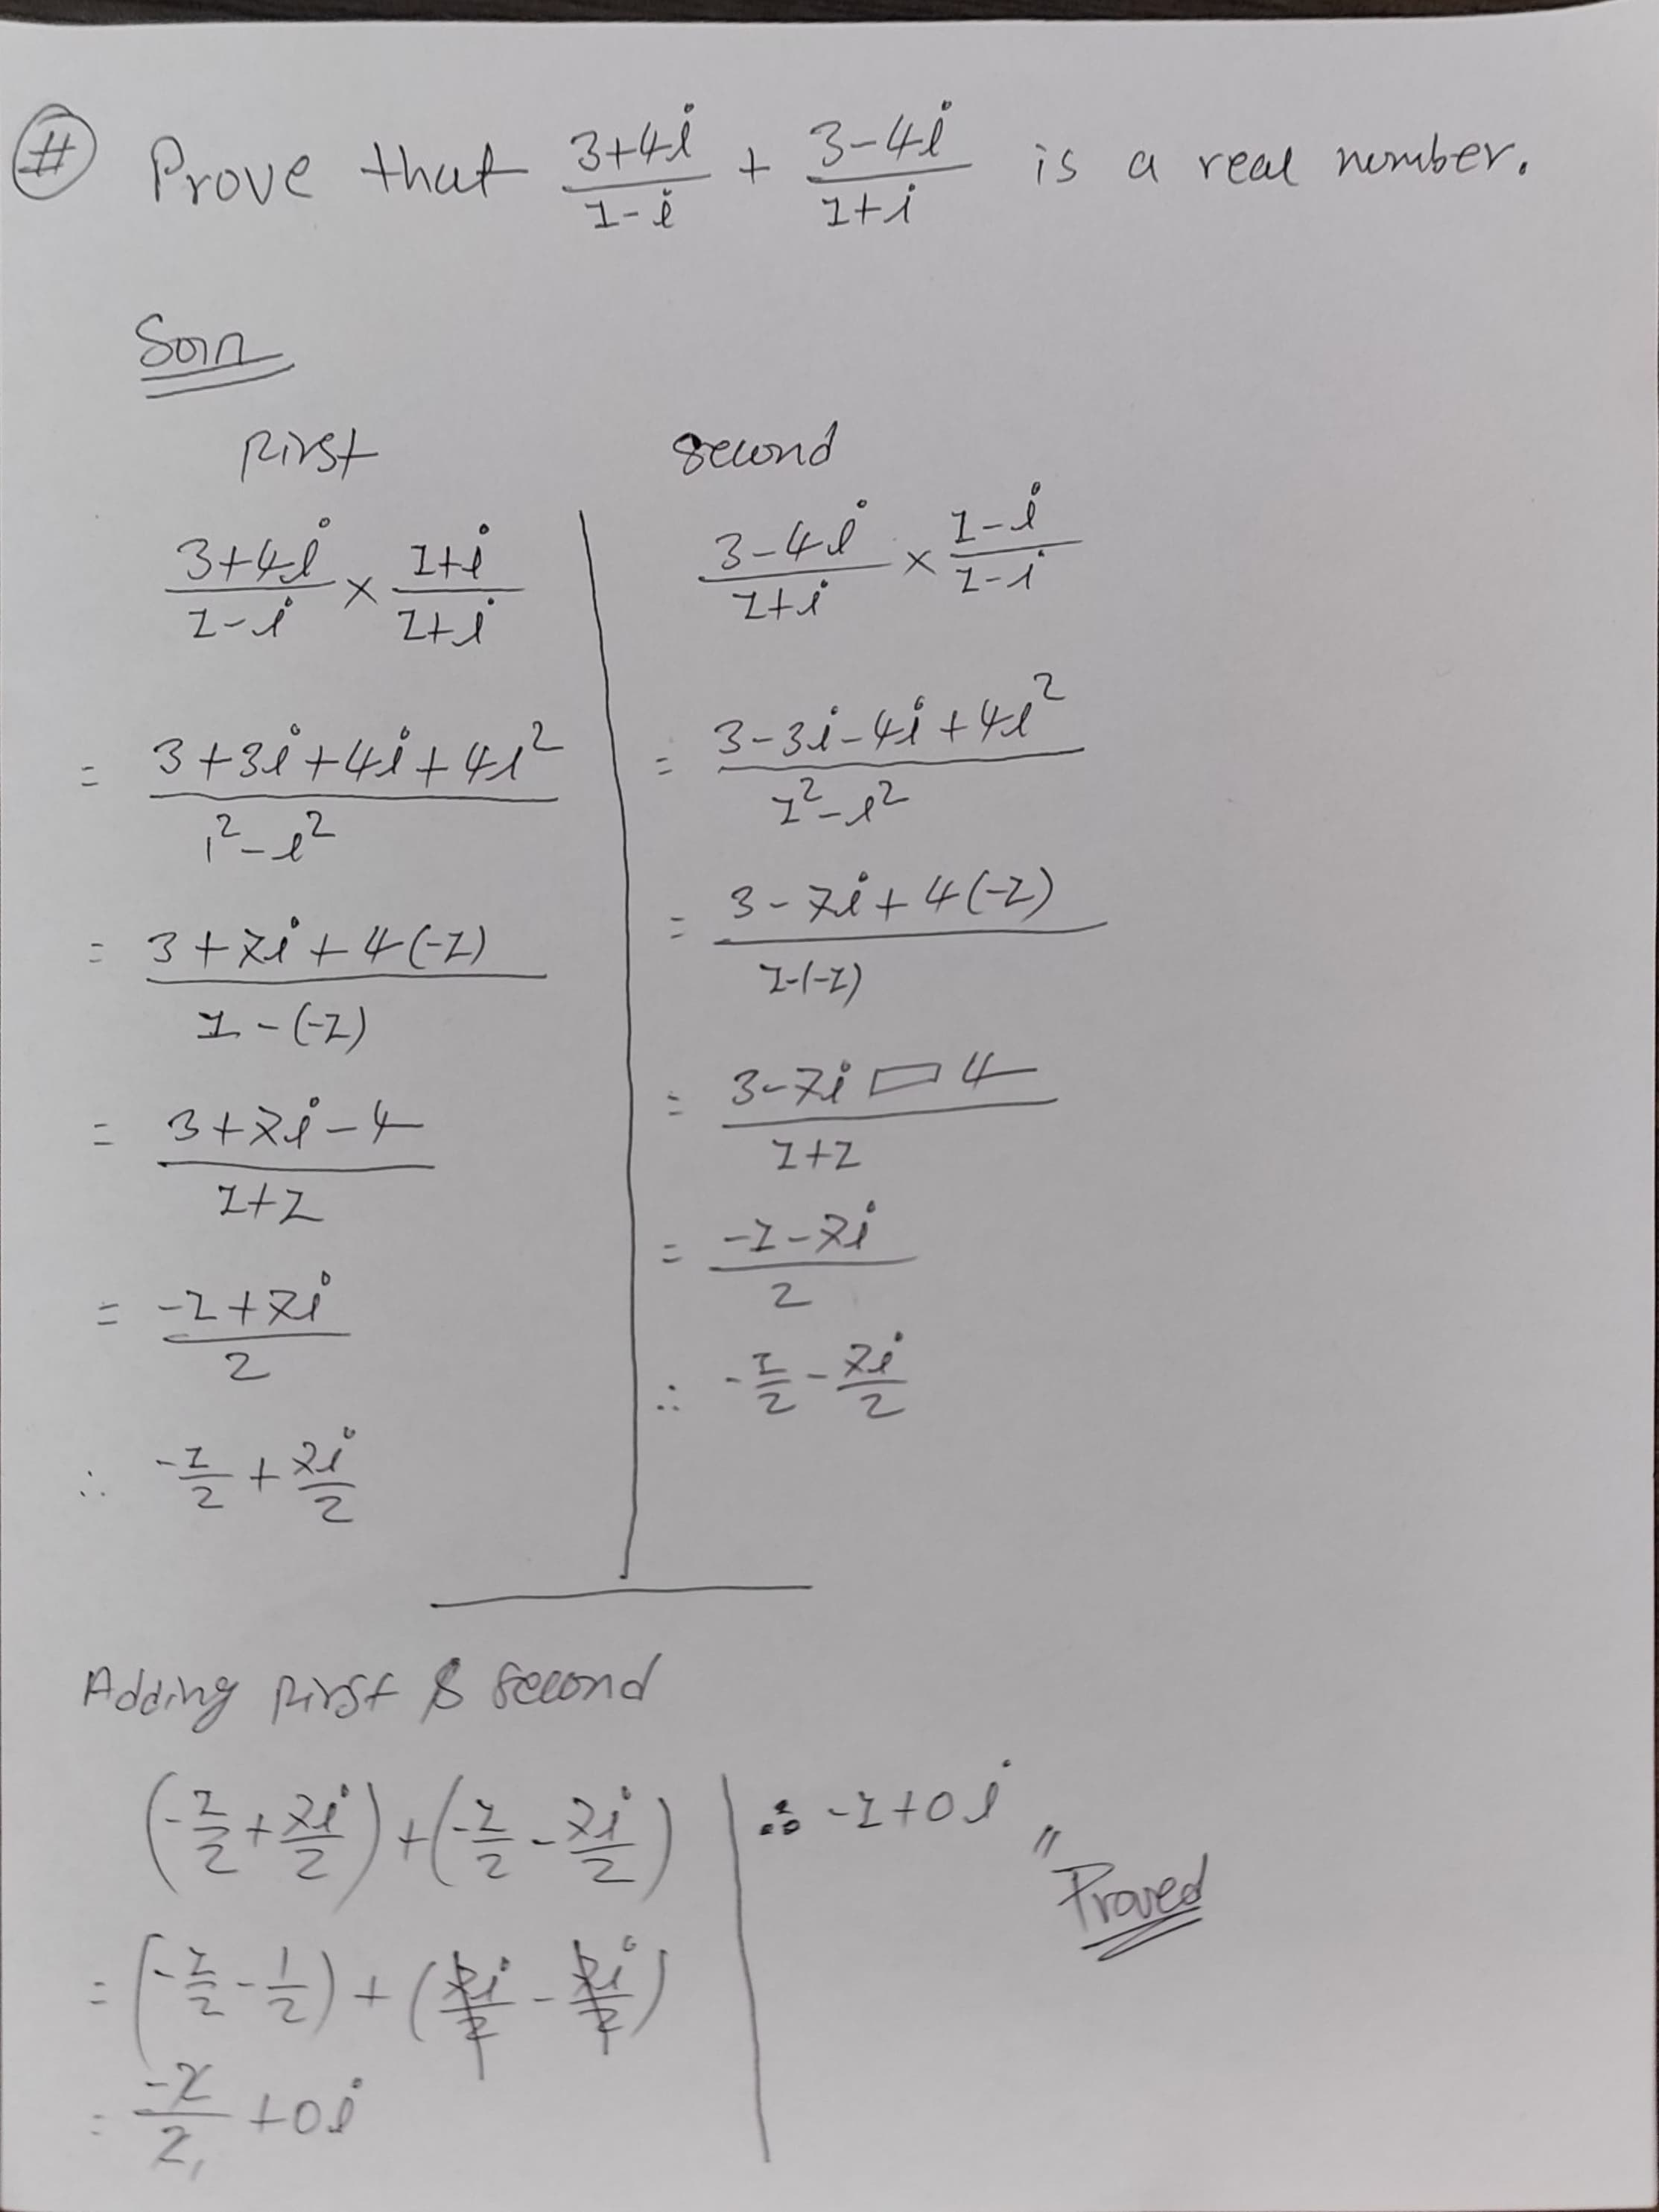 # Prove that (3+4i)/(1-i) + (3-4i)/(1+i) is a real number.
Soln
First
(3+4i)/(1-i) × (1+i)/(1+i)
= (3+3i+4i+4i²)/(1²-i²)
= (3+7i+4(-1))/(1-(-1))
= (3+7i-4)/(1+1)
= (-1+7i)/2
∴ -1/2 + 7i/2
second
(3-4i)/(1+i) × (1-i)/(1-i)
= (3-3i-4i+4i²)/(1²-i²)
= (3-7i+4(-1))/(1-(-1))
= (3-7i-4)/(1+1)
= (-1-7i)/2
∴ -1/2 - 7i/2
Adding First & Second
(-1/2 + 7i/2) + (-1/2 - 7i/2)
= (-1/2 - 1/2) + (7i/2 - 7i/2)
= -2/2 + 0i
∴ -1+0i "
Proved